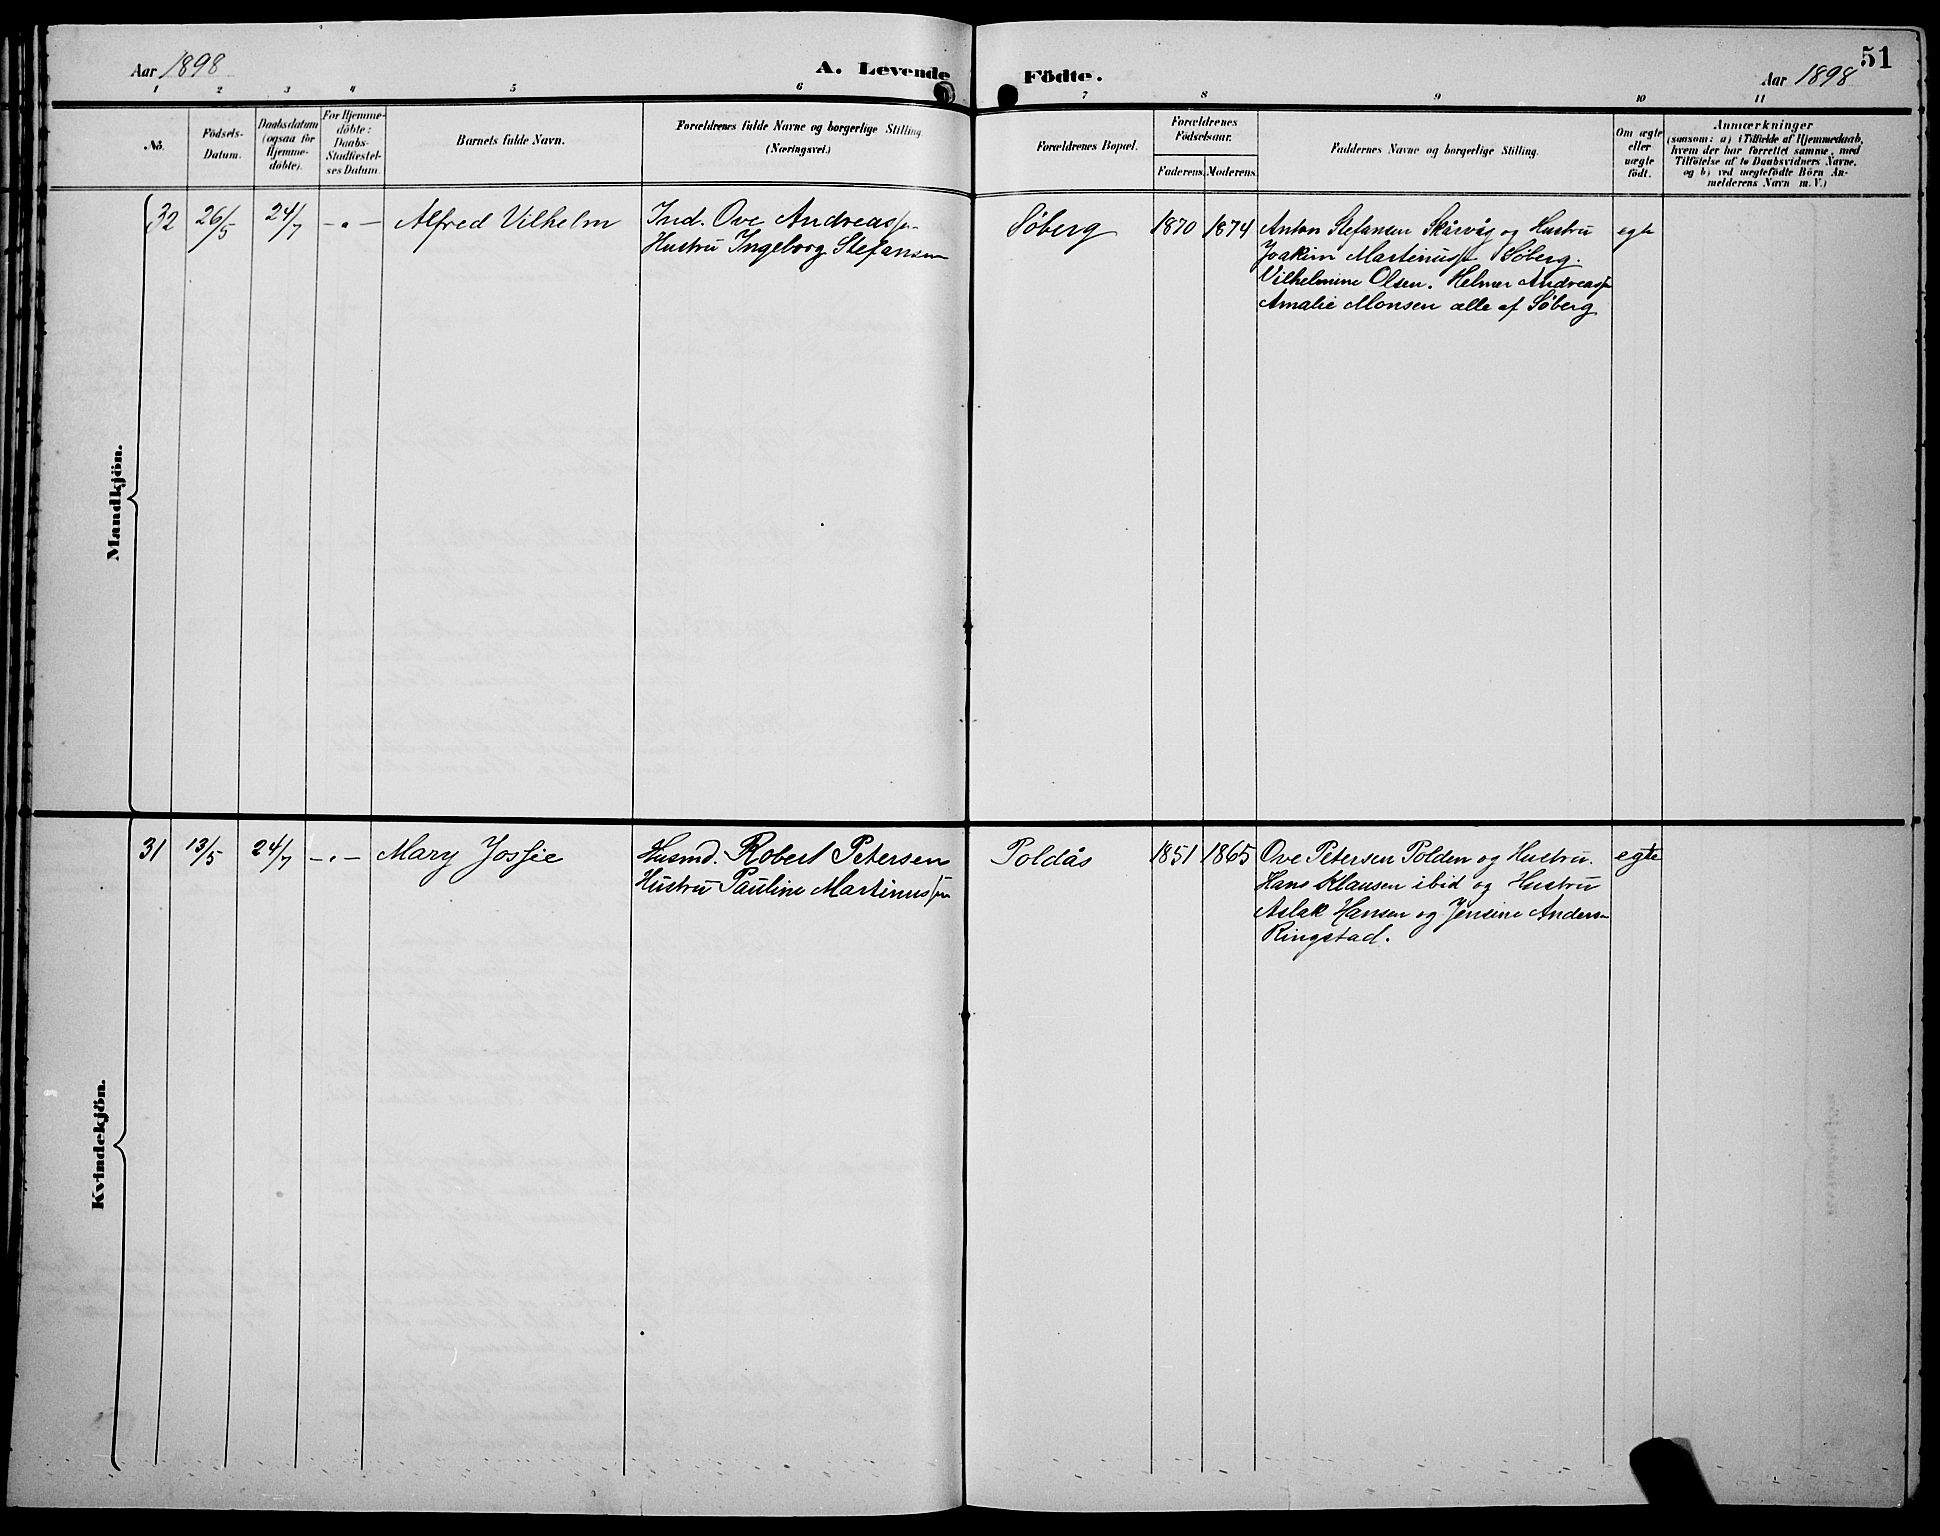 Aar 1898
A. Levende Födte.
51
Aar 1898
1 2 3 4 5 6 7 8 9 10 11
No.
Födsels-
Datum.
Daabsdatum
(ogsaa for
Hjemme-
döbte).
For Hjemme-
döbte:
Daabs-
Stadfæstel-
ses Datum.
Barnets fulde Navn.
Forældrenes fulde Navne og borgerlige Stilling
(Næringsvei.)
Forældrenes Bopæl.
Forældrenes
Födselsaar.
Faderens. Moderens.
Faddernes Navne og borgerlige Stilling.
Om ægte
eller
uægte
födt.
Anmærkninger
(saasom: a) i Tilfælde af Hjemmedaab,
hvem der har forrettet samme, med
Tilföielse af to Daabsvidners Navne.
og b) ved uægtefödte Börn An-
melderens Navn m. V.)
Mandkjön.
32 26/5 24/7 - „ - Alfred Vilhelm
Ind. Ove Andreass/n
Hustru Ingeborg Stefansen
Söberg
1870 1874
Anton Stefansen Skårvåg og Hustru
Joakim Martinuss/n Söberg.
Vilhelmine Olsen. Helmer Andreass/n
Amalie Monsen alle af Söberg
egte
Kvindekjön.
31 13/5 24/7 - „ - Mary Jossie
Husmd. Robert Petersen
Hustru Pauline Martinuss/en
Poldås
1851 1865
Ove Petersen Polden og Hustru.
Hans Klausen ibid og Hustru
Aslak Hansen og Jensine Anders/n
Ringstad.
egte